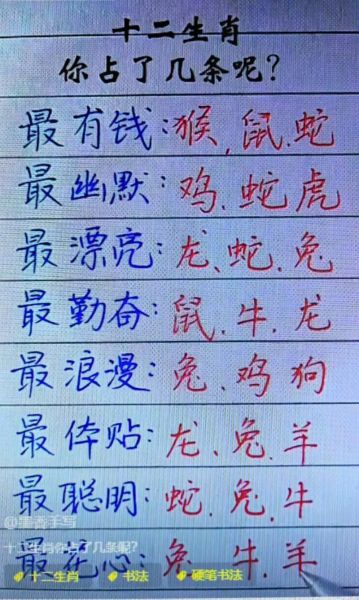 十二生肖
你占了几条呢?
最有钱:猴,鼠.蛇
最幽默:鸡.蛇虎
最漂亮:龙、蛇.兔
最勤奋:鼠.牛.龙
最浪漫:兔.鸡狗
最体贴:龙、兔.羊
最聪明:蛇.兔.牛
十二生肖你占了几条呢?
最花心:兔.牛.羊
十二生肖 书法 硬笔书法